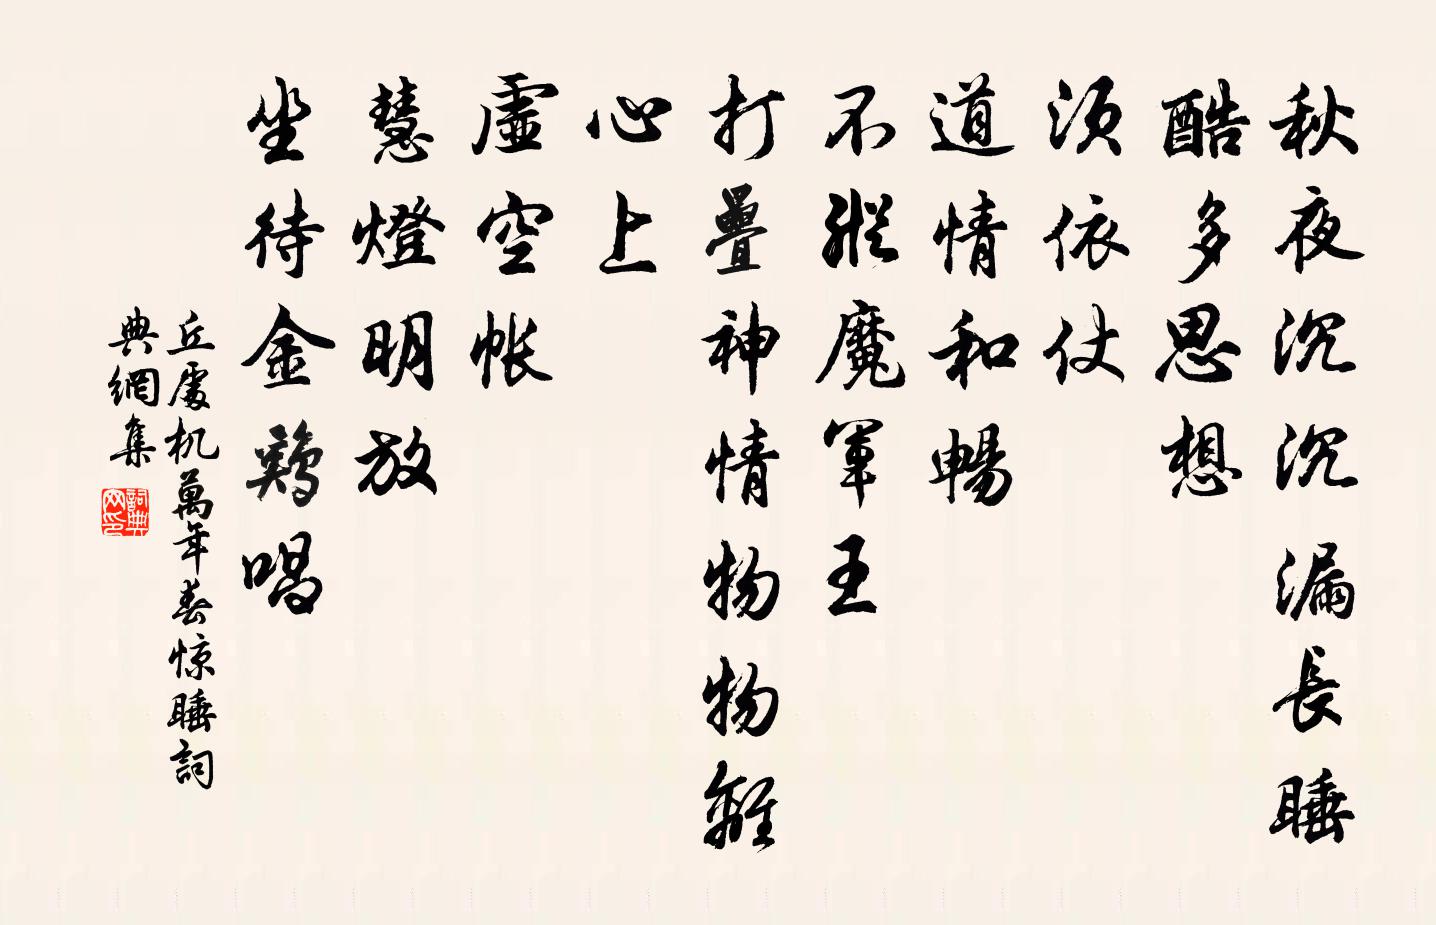 秋夜沉沉漏長睡
酷多思想
須依仗
道情和暢
不縱魔軍王
打疊神情物物離
心上
虛空帳
慧燈明放
坐待金鷄唱
丘處机萬年春惊睡詞
典網集
詞典网印